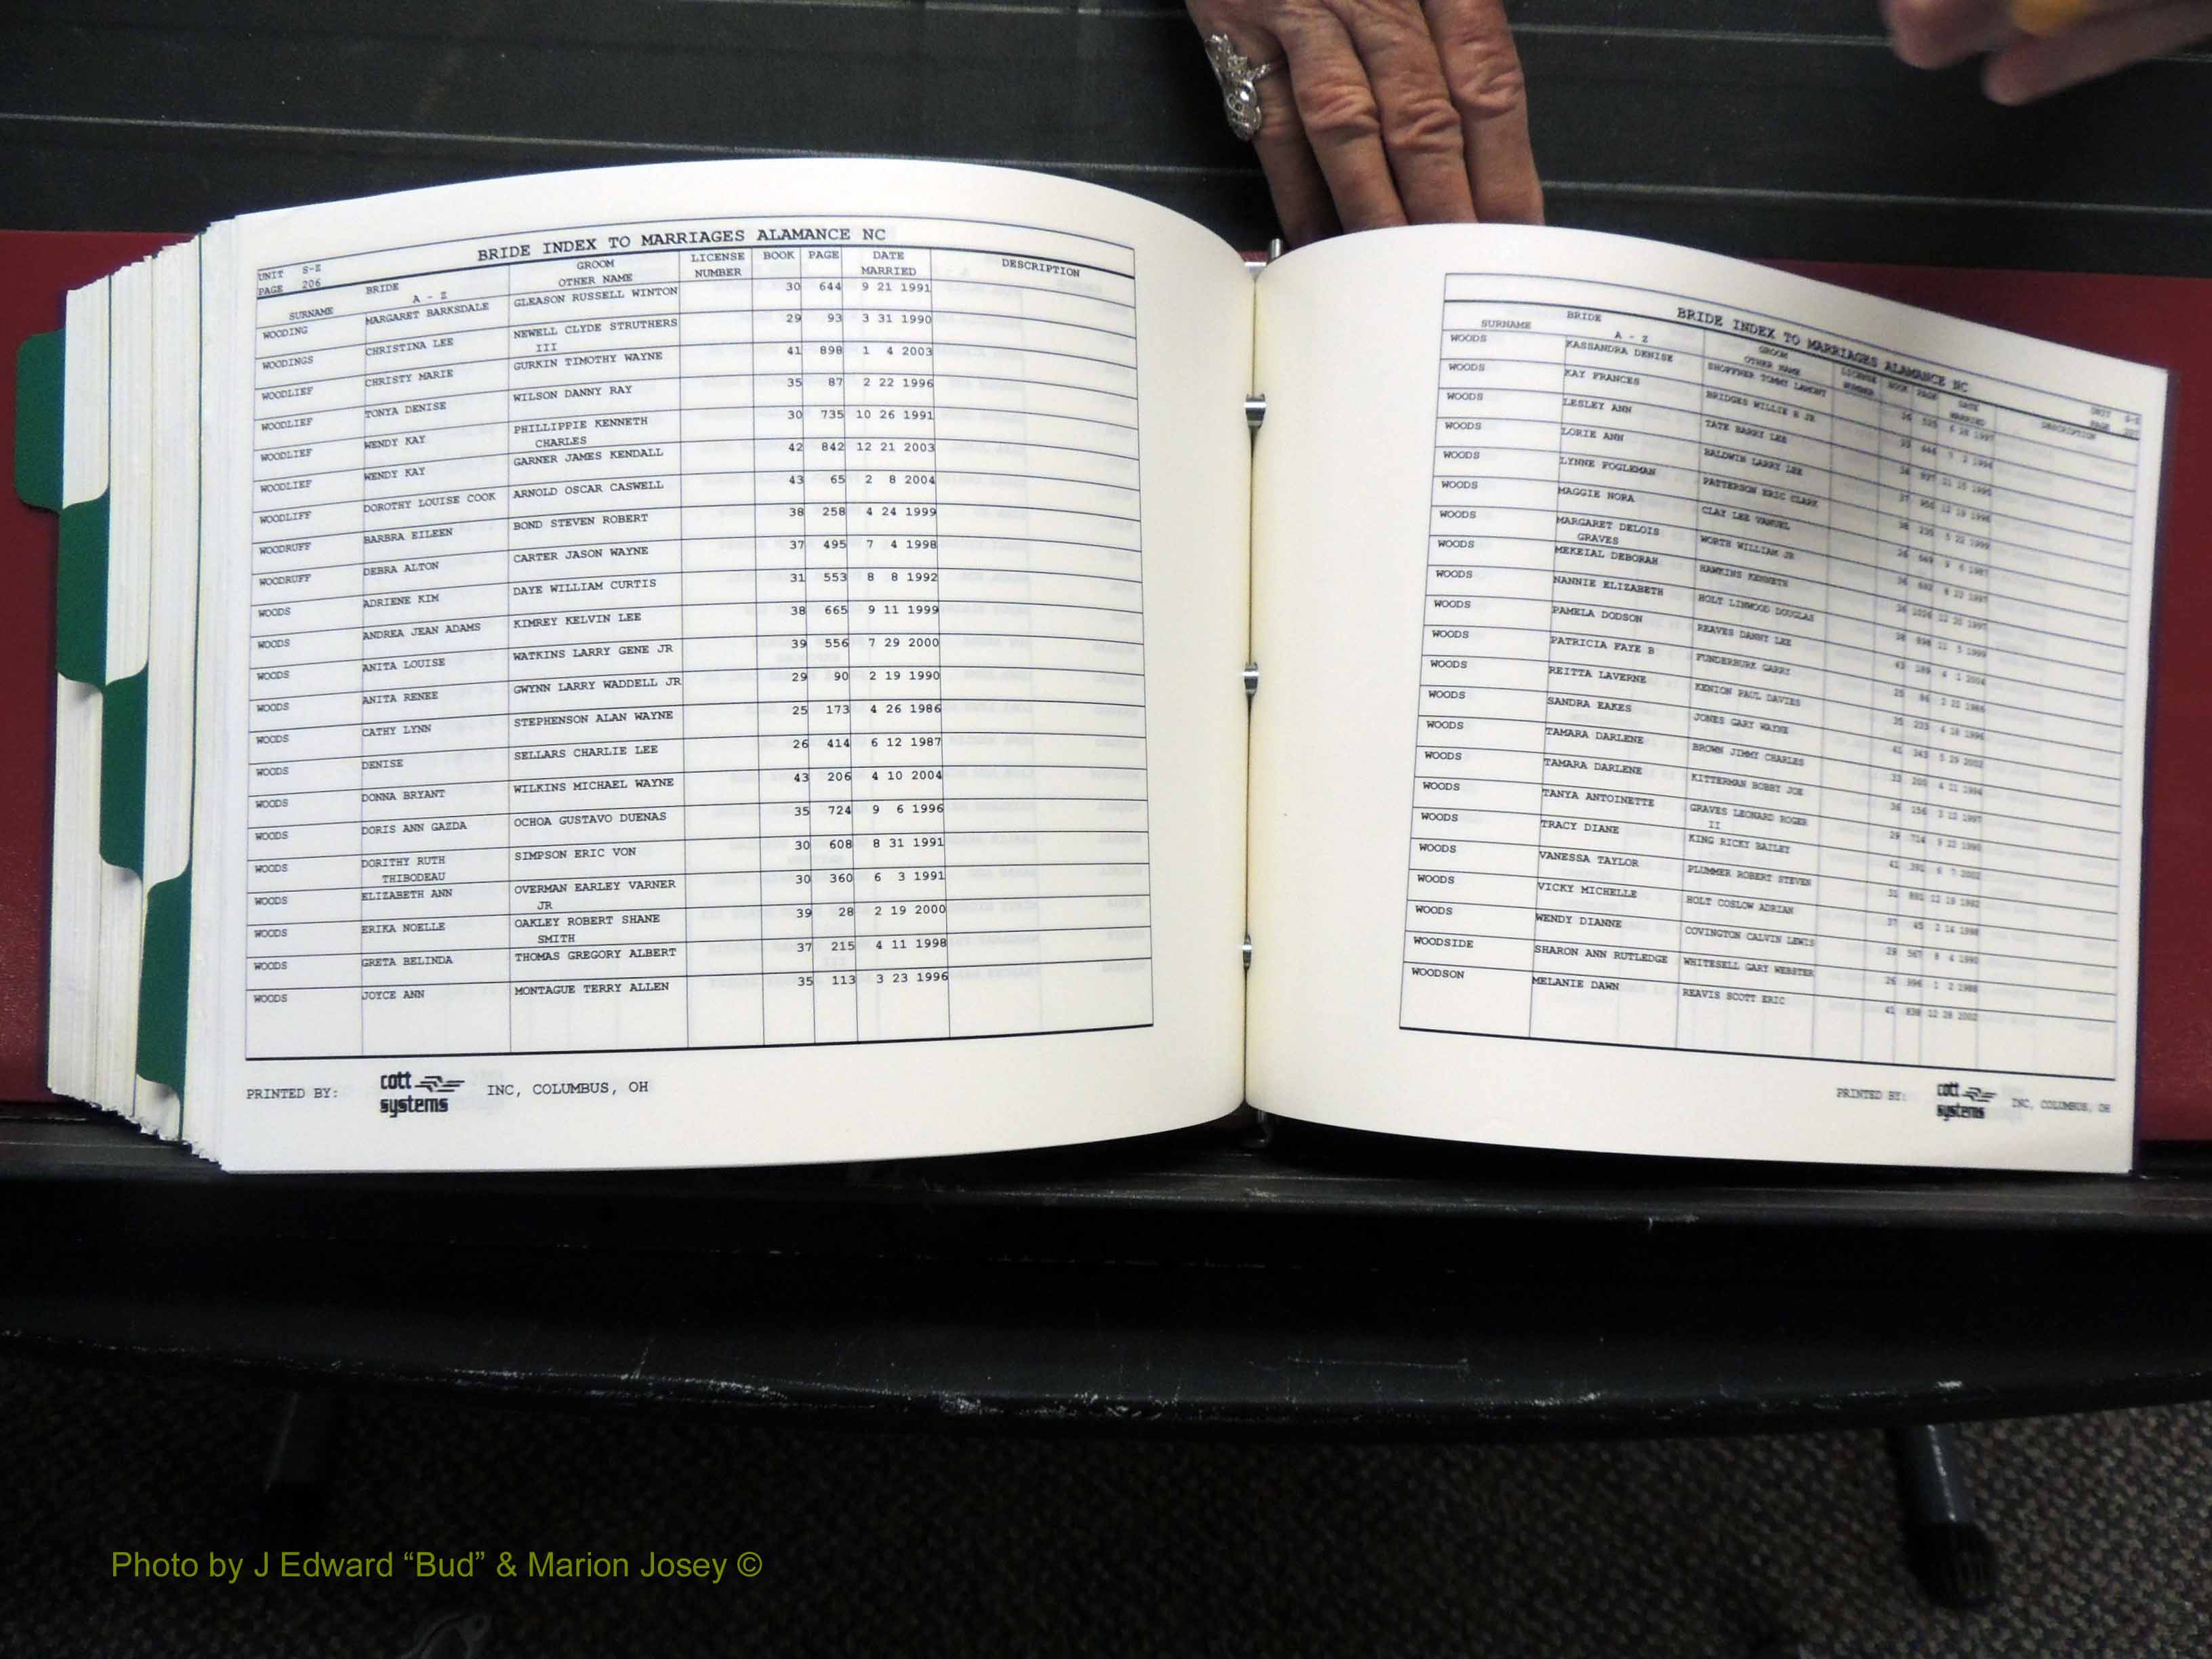 BRIDE INDEX TO MARRIAGES ALAMANCE NC
UNIT S-Z
PAGE 206
SURNAME BRIDE A - Z GROOM OTHER NAME LICENSE NUMBER BOOK PAGE DATE MARRIED DESCRIPTION
WOODING MARGARET BARKSDALE GLEASON RUSSELL WINTON 30 644 9 21 1991
WOODINGS CHRISTINA LEE NEWELL CLYDE STRUTHERS III 29 93 3 31 1990
WOODLIEF CHRISTY MARIE GURKIN TIMOTHY WAYNE 41 898 1 4 2003
WOODLIEF TONYA DENISE WILSON DANNY RAY 35 87 2 22 1996
WOODLIEF WENDY KAY PHILLIPPIE KENNETH CHARLES 30 735 10 26 1991
WOODLIEF WENDY KAY GARNER JAMES KENDALL 42 842 12 21 2003
WOODLIFF DOROTHY LOUISE COOK ARNOLD OSCAR CASWELL 43 65 2 8 2004
WOODRUFF BARBRA EILEEN BOND STEVEN ROBERT 38 258 4 24 1999
WOODRUFF DEBRA ALTON CARTER JASON WAYNE 37 495 7 4 1998
WOODS ADRIENE KIM DAYE WILLIAM CURTIS 31 553 8 8 1992
WOODS ANDREA JEAN ADAMS KIMREY KELVIN LEE 38 665 9 11 1999
WOODS ANITA LOUISE WATKINS LARRY GENE JR 39 556 7 29 2000
WOODS ANITA RENEE GWYNN LARRY WADDELL JR 29 90 2 19 1990
WOODS CATHY LYNN STEPHENSON ALAN WAYNE 25 173 4 26 1986
WOODS DENISE SELLARS CHARLIE LEE 26 414 6 12 1987
WOODS DONNA BRYANT WILKINS MICHAEL WAYNE 43 206 4 10 2004
WOODS DORIS ANN GAZDA OCHOA GUSTAVO DUENAS 35 724 9 6 1996
WOODS DORITHY RUTH THIBODEAU SIMPSON ERIC VON 30 608 8 31 1991
WOODS ELIZABETH ANN OVERMAN EARLEY VARNER JR 30 360 6 3 1991
WOODS ERIKA NOELLE OAKLEY ROBERT SHANE SMITH 39 28 2 19 2000
WOODS GRETA BELINDA THOMAS GREGORY ALBERT 37 215 4 11 1998
WOODS JOYCE ANN MONTAGUE TERRY ALLEN 35 113 3 23 1996
PRINTED BY: cott systems INC, COLUMBUS, OH
BRIDE INDEX TO MARRIAGES ALAMANCE NC
SURNAME BRIDE A - Z GROOM OTHER NAME LICENSE NUMBER BOOK PAGE DATE MARRIED DESCRIPTION
WOODS KASSANDRA DENISE SHOFFNER TOMMY LAMONT
WOODS KAY FRANCES BRIDGES WILLIE B JR
WOODS LESLEY ANN TATE BARRY LEE
WOODS LORIE ANN BALDWIN LARRY LEE
WOODS LYNNE FOGLEMAN PATTERSON ERIC CLARK
WOODS MAGGIE NORA CLAY LEE VANUEL
WOODS MARGARET DELOIS GRAVES WORTH WILLIAM JR
WOODS MEKEIAL DEBORAH HAWKINS KENNETH
WOODS NANNIE ELIZABETH HOLT LINWOOD DOUGLAS
WOODS PAMELA DODSON REAVES DANNY LEE
WOODS PATRICIA FAYE B FUNDERBURK GARRY
WOODS REITTA LAVERNE KENION PAUL DAVIES
WOODS SANDRA EAKES JONES GARY WAYNE
WOODS TAMARA DARLENE BROWN JIMMY CHARLES
WOODS TAMARA DARLENE KITTERMAN BOBBY JOE
WOODS TANYA ANTOINETTE GRAVES LEONARD ROGER II
WOODS TRACY DIANE KING RICKY BAILEY
WOODS VANESSA TAYLOR PLUMMER ROBERT STEVEN
WOODS VICKY MICHELLE HOLT COSLOW ADRIAN
WOODS WENDY DIANNE COVINGTON CALVIN LEWIS
WOODSIDE SHARON ANN RUTLEDGE WHITESELL GARY WEBSTER
WOODSON MELANIE DAWN REAVIS SCOTT ERIC
PRINTED BY: cott systems INC, COLUMBUS, OH
Photo by J Edward “Bud” & Marion Josey ©